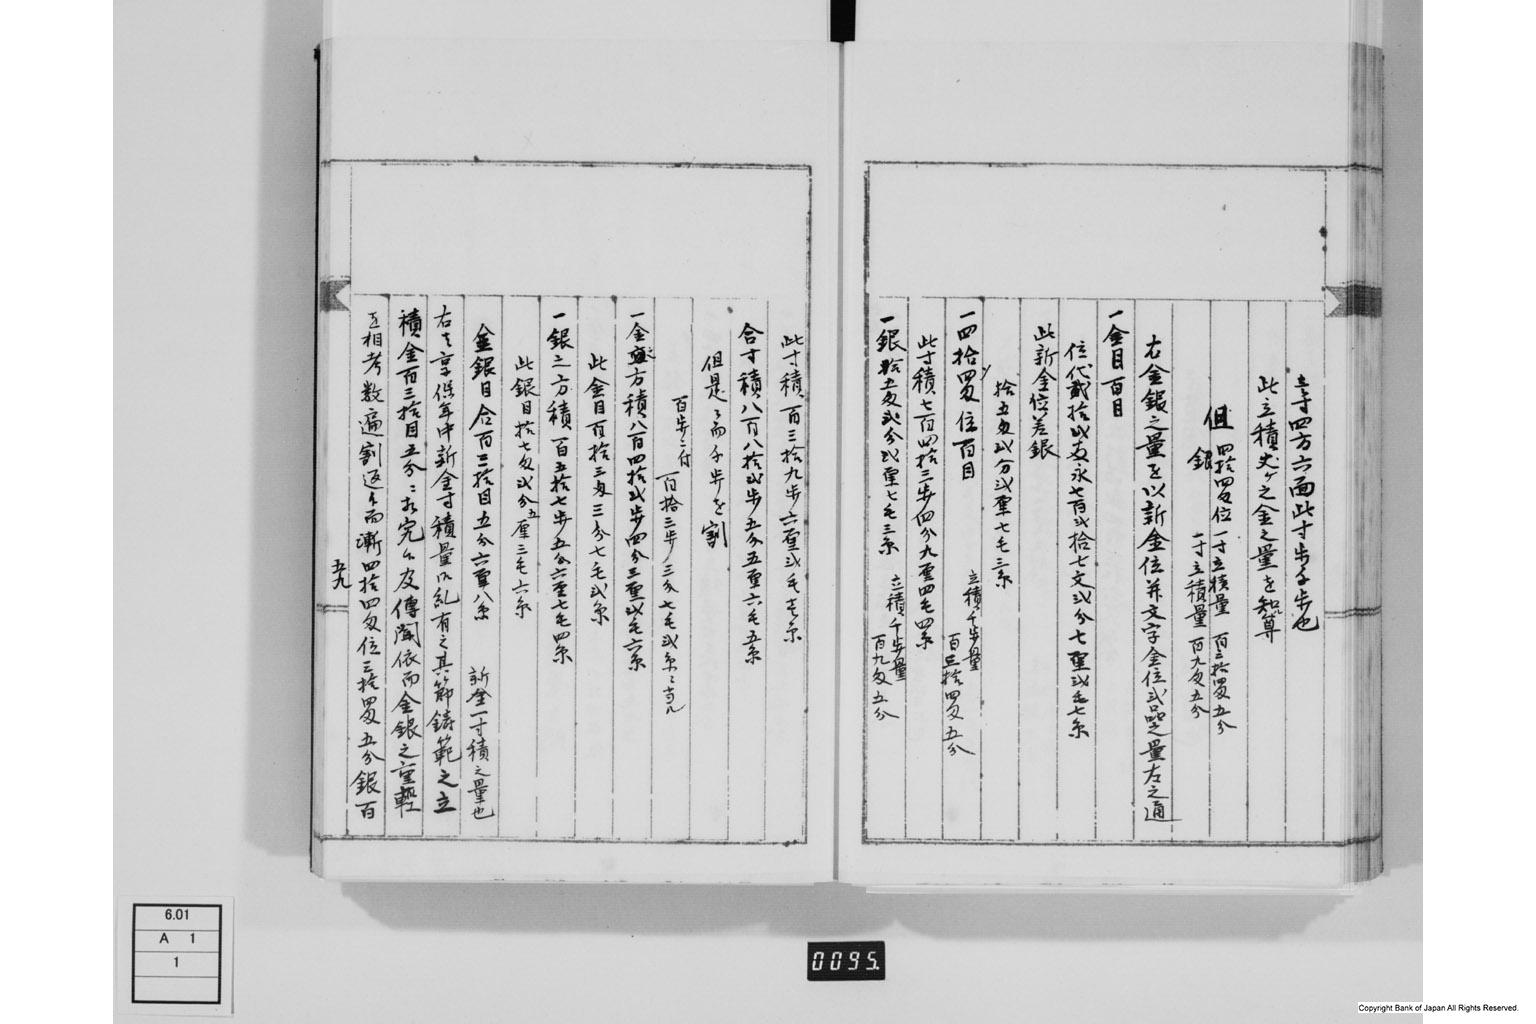 壹寸四方六面此寸歩千歩也
此立積丈ケ之金之量を知算
但 四拾四匁位 一寸立積量 百三拾四匁五分
銀 一寸立積量 百九匁五分
右金銀之量を以新金位并文字金位弐品之量左之通
一金目百目
位代貳拾弐両永七百弐拾七文弐分七厘弐毛七糸
此新金位差銀
拾五匁弐分弐厘七毛三糸
一四拾四匁位百目 立積千歩量 百三拾四匁五分
此寸積七百四拾三歩四分九厘四毛四糸
一銀拾五匁弐分弐厘七毛三糸 立積千歩量 百九匁五分
此寸積百三拾九歩六厘弐毛壱糸
合寸積八百八拾弐歩五分五厘六毛五糸
但是ニ而千歩を割
百歩ニ付 百拾三歩三分七毛弐糸ニ当ル
一金之方積八百四拾弐歩四分三厘弐毛六糸
此金目百拾三匁三分七毛弐糸
一銀之方積百五拾七歩五分六厘七毛四糸
此銀目拾七匁弐分五厘三毛六糸
金銀目合百三拾目五分六厘八糸 新金一寸積之量也
右者享保年中新金寸積量御糺有之其節鋳範之立
積金百三拾目五分ニ相究候及傳聞依而金銀之重輕
を相考数遍割返候而漸四拾四匁位三拾四匁五分銀百
五九
6.01
A 1
1
0095.
Copyright Bank of Japan All Rights Reserved.